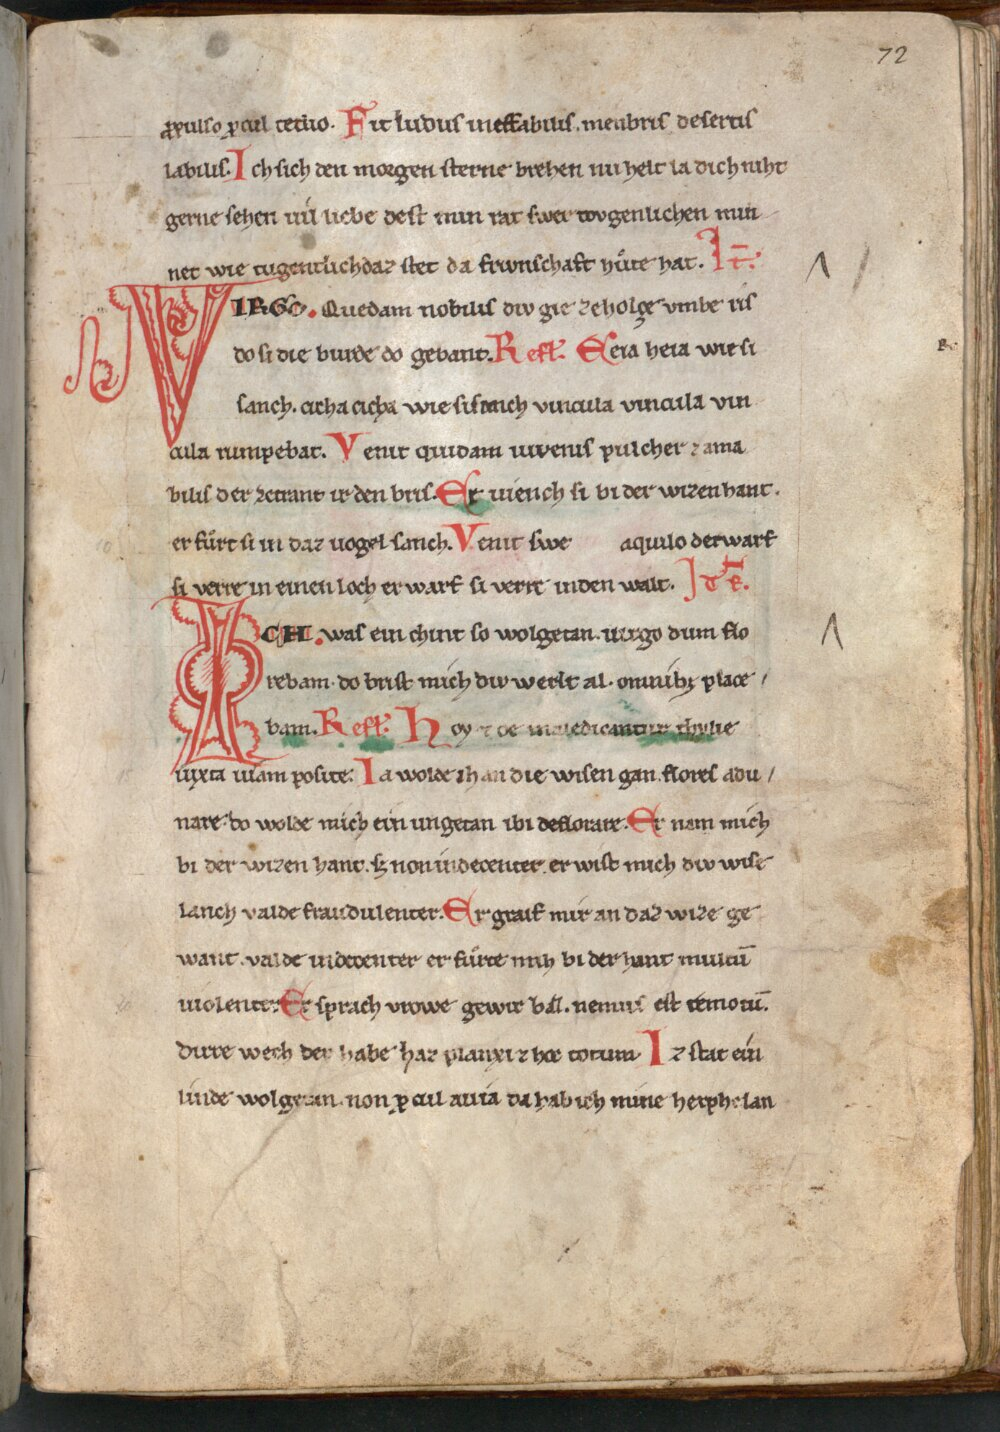 72
p̄pulso ꝓcul tedio. Fit ludus ineffabilis. menbris desertis
labilis. Ich sich den morgen sterne brehen nu helt la dich niht
gerne sehen uil liebe dest min rat swer tovgenlichen min
net wie tugentlich daz stet da frivnschaft hůte hat. It̄.
VIRGO. Quedam nobilis div gie ze holze vmbe ris
do si die burde do gebant. Refl. Eeia heia wie si
sanch. cicha cicha wie si sanch vincula vincula vin
cula rumpebat. Venit quidam iuvenis pulcher ⁊ ama
bilis der zetrant ir den bris. Er uiench si bi der wizen hant.
er fůrt si in daz uogel sanch. Venit siue aquilo der warf
si verre in einen loch er warf si verre in den walt. It̄
ICH. was ein chint so wolgetan. uirgo dum flo
rebam. do brist mich div werlt al. omnibꝫ place
bam. Refl. Hoy ⁊ oe maledicantur thylie
iuxta uiam posite. Ia wolde ih an die wisen gan. flores adu
nare. do wolde mich ein ungetan ibi deflorare. Er nam mich
bi der wizen hant. sꝫ non indecenter. er wist mich div wise
lanch valde fraudulenter. Er graif mir an daz wize ge
want. valde indecenter er fůrte mih bi der hant multū
uiolenter. Er sprach vrowe gewir baz. nemus est remotū.
dirre wech der habe haz planxi ⁊ hoc totum. Iz stat ein
linde wolgetan. non ꝓcul a uia da hab ich mine herphe lan